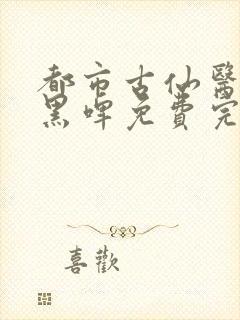 都市古仙醫
黑啤免費完
喜歡